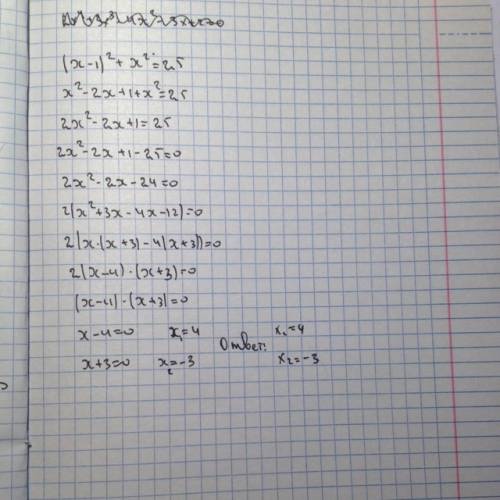 (x-1)²+x²=25
x²-2x+1+x²=25
2x²-2x+1=25
2x²-2x+1-25=0
2x²-2x-24=0
2(x²+3x-4x-12)=0
2(x·(x+3)-4(x+3))=0
2(x-4)·(x+3)=0
(x-4)·(x+3)=0
x-4=0 x₁=4 Ответ: x₁=4
x+3=0 x₂=-3 x₂=-3